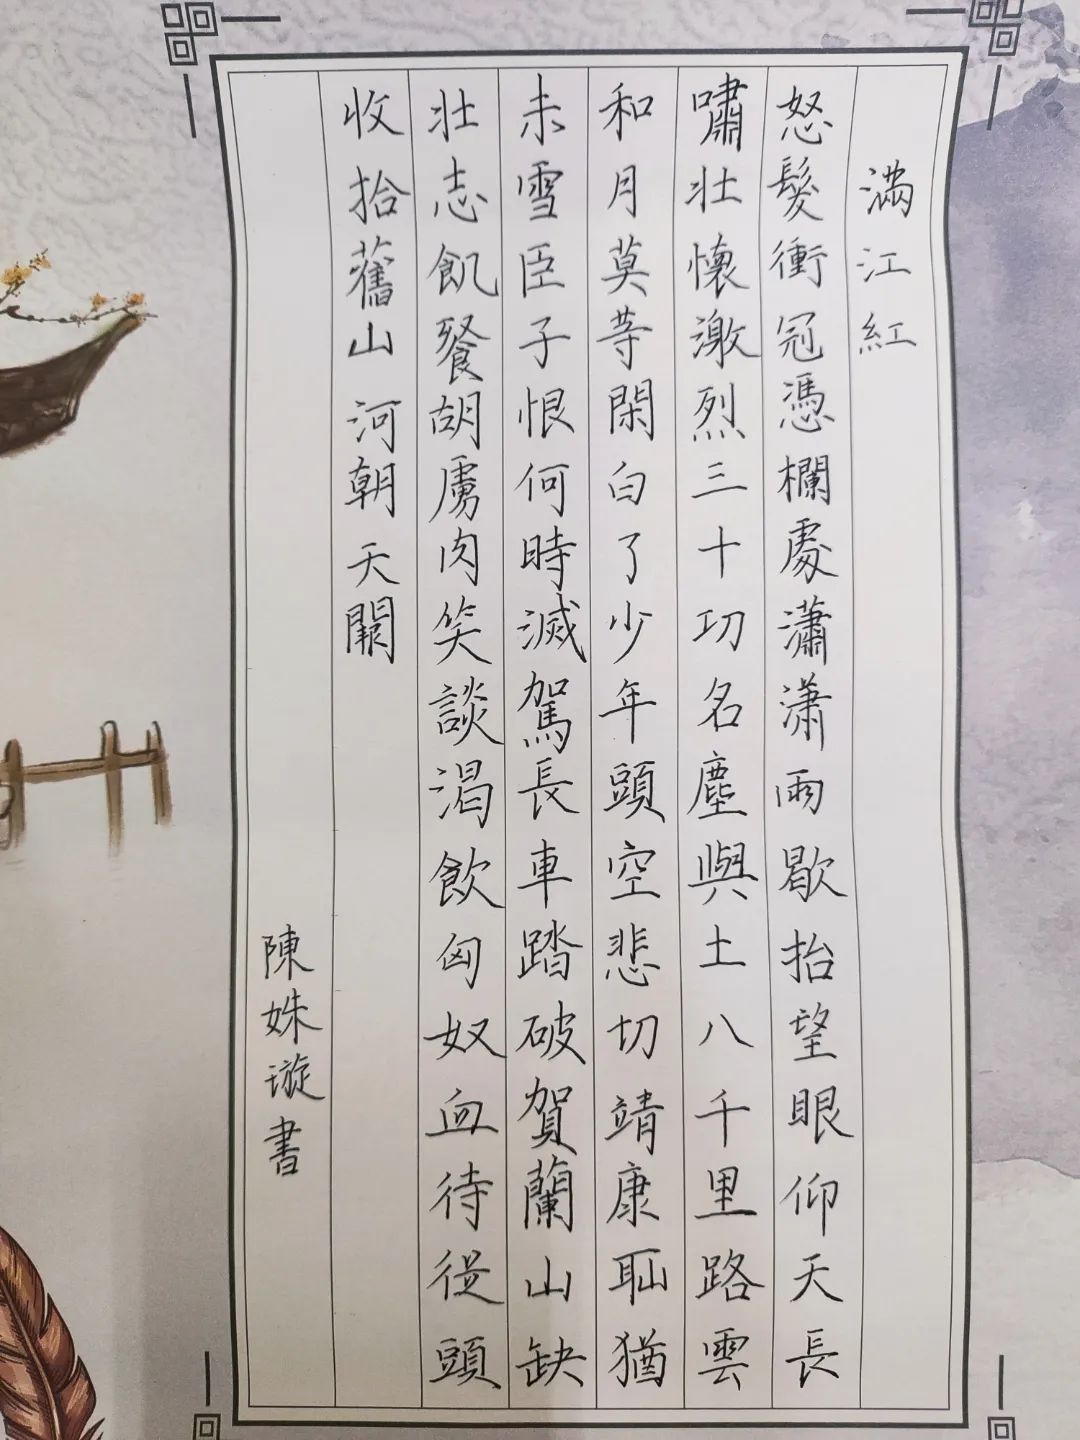 滿江紅
怒髮衝冠憑欄處瀟潇雨歇抬望眼仰天長
嘯壯懷激烈三十功名塵與土八千里路雲
和月莫等閑白了少年頭空悲切靖康耻猶
未雪臣子恨何時滅駕長車踏破賀蘭山缺
壮志飢餐胡虜肉笑談渴飲匈奴血待從頭
收拾舊山河朝天闕
陳姝璇書